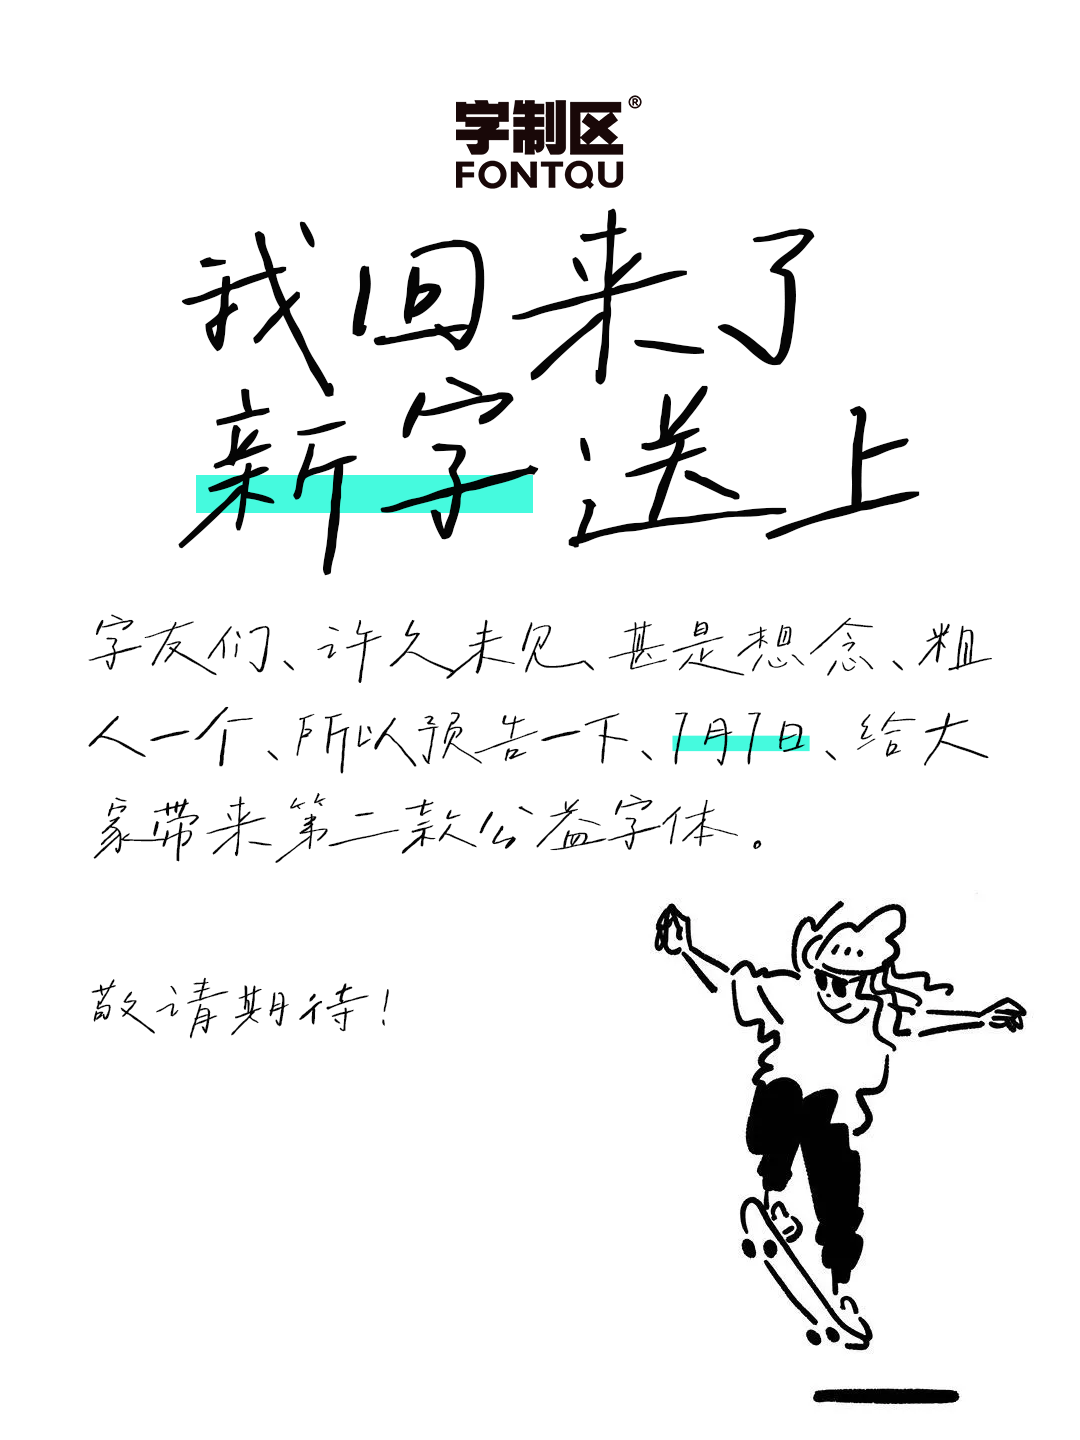 字制区®
FONTQU
我回来了
新字送上
字友们、许久未见、甚是想念、粗
人一个、所以预告一下、7月7日、给大
家带来第二款公益字体。
敬请期待！